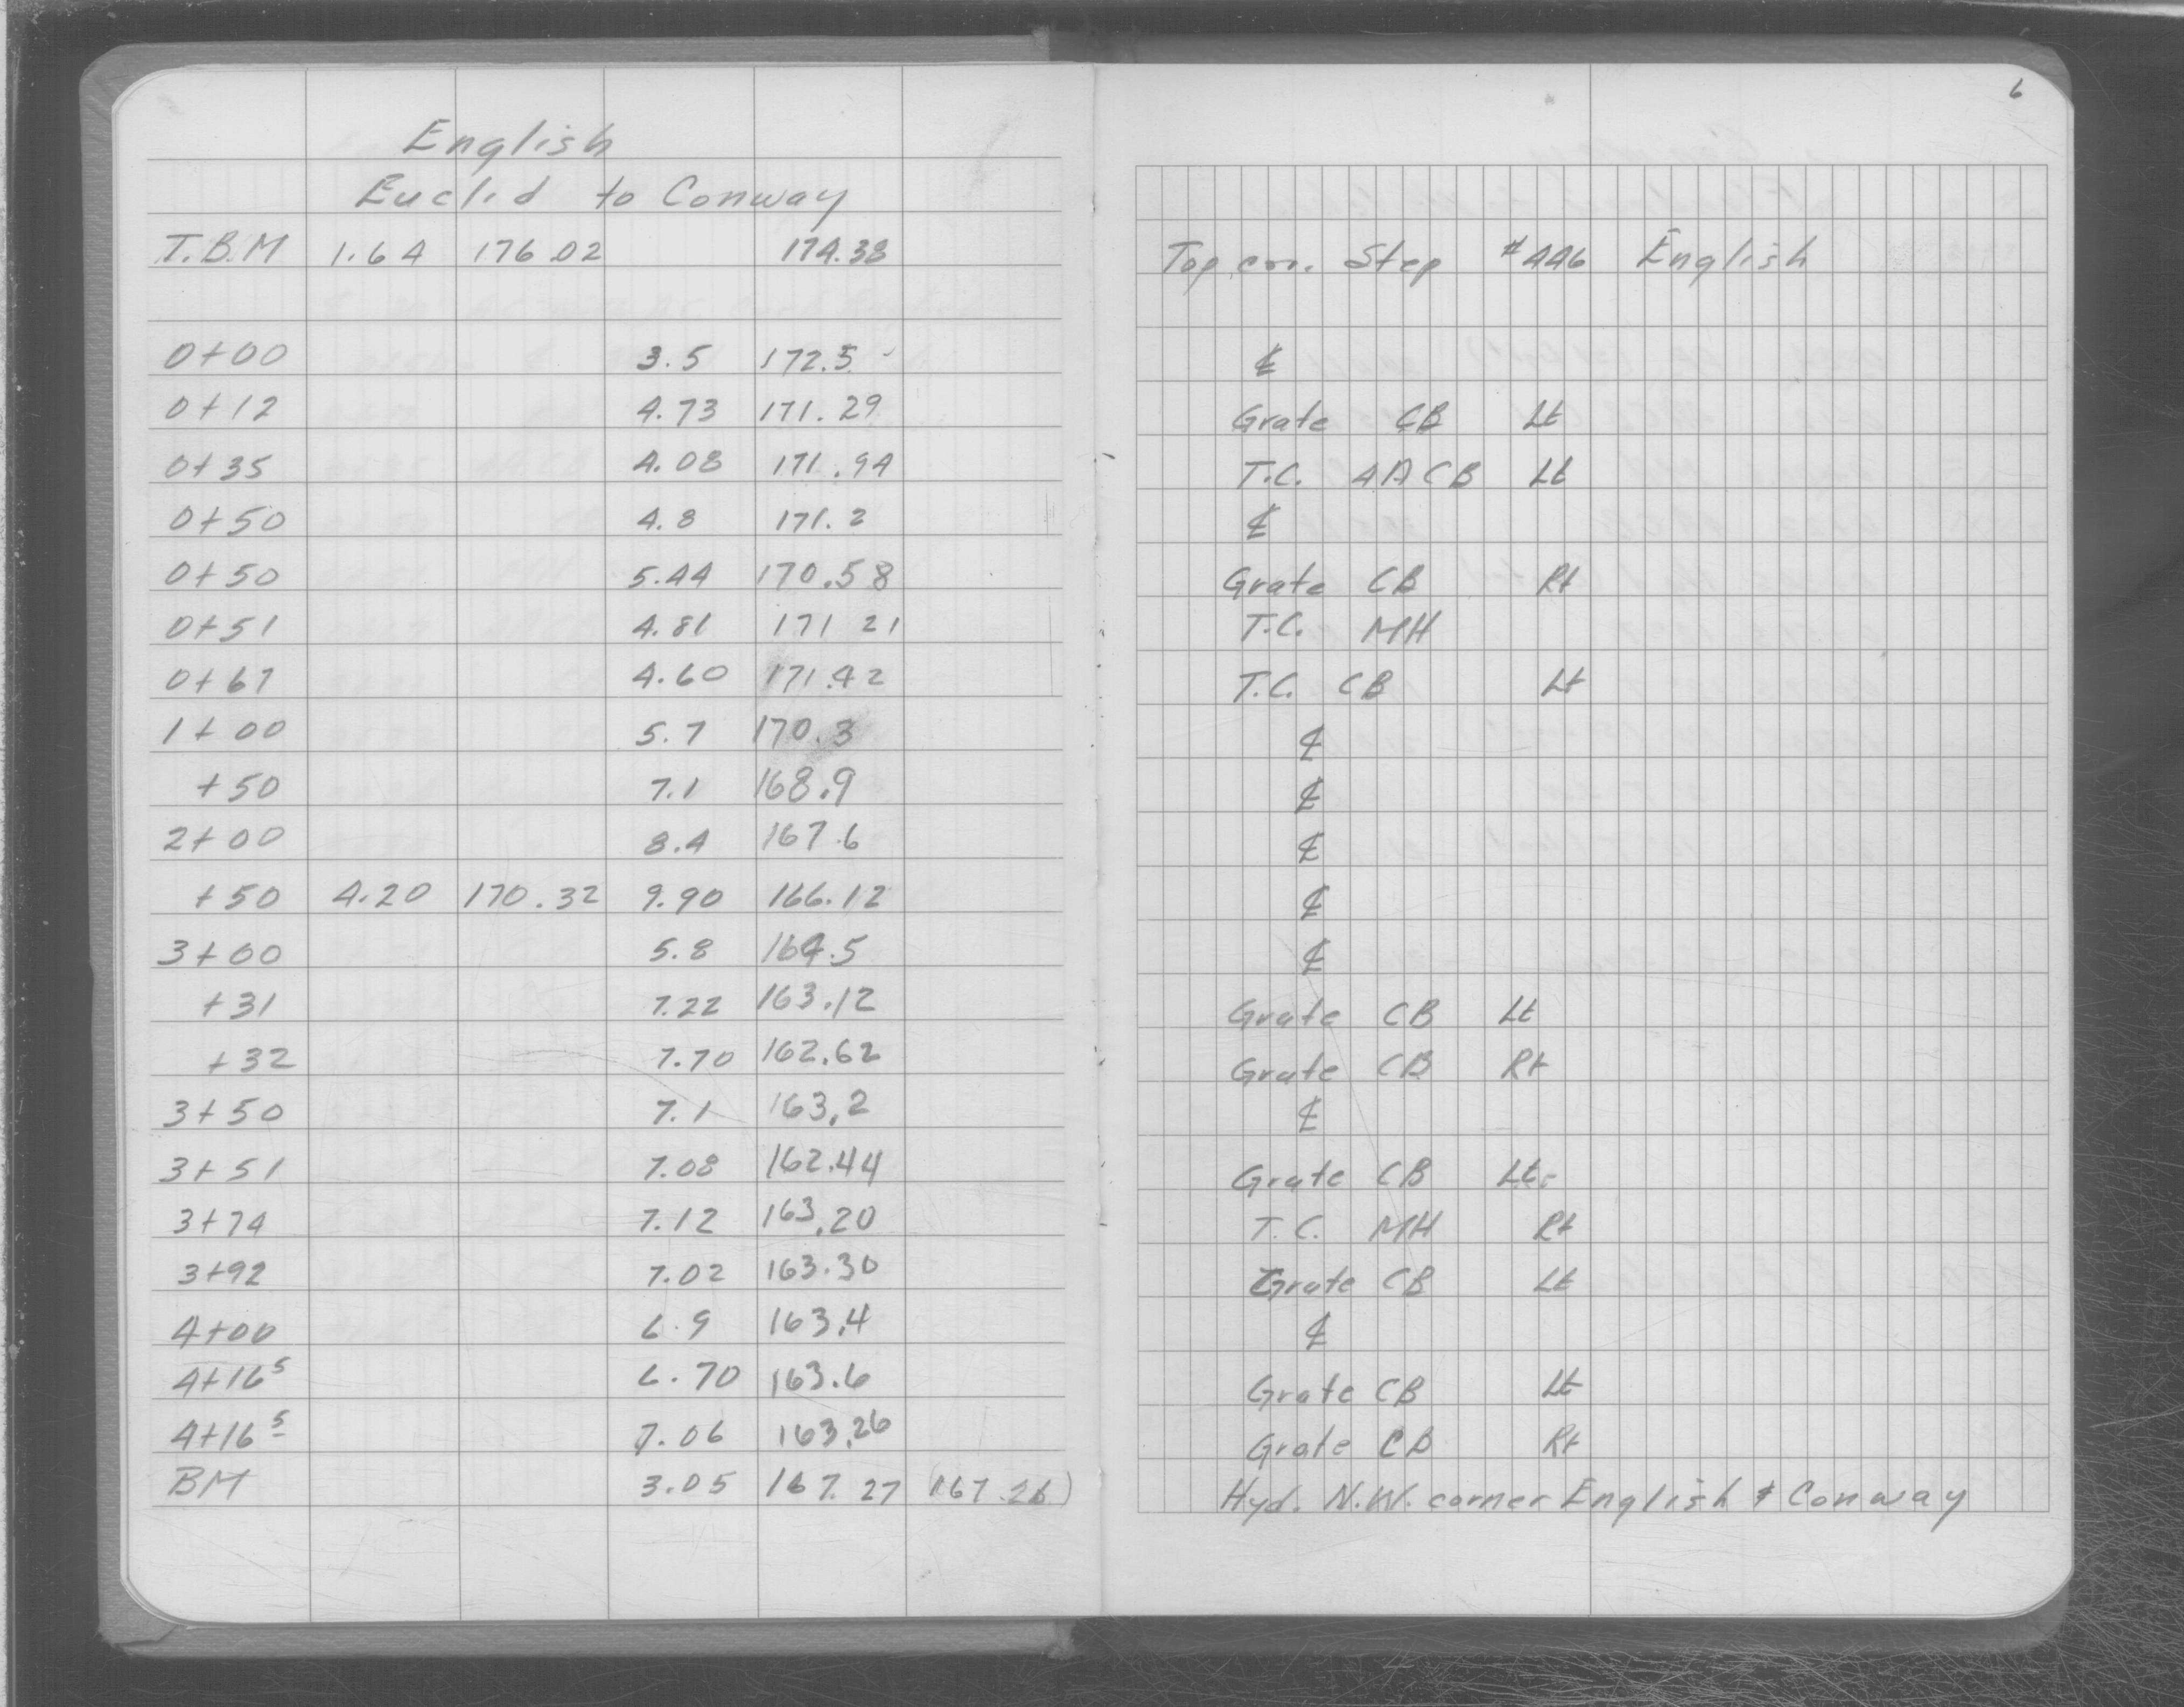 6
English
Euclid to Conway
T.B.M 1.64 176.02 174.38 Top cor. Step #446 English
0+00 3.5 172.5 ℄
0+12 4.73 171.29 Grate CB Lt
0+35 4.08 171.94 T.C. 4A CB Lt
0+50 4.8 171.2 ℄
0+50 5.44 170.58 Grate CB Rt
0+51 4.81 171 21 T.C. MH
0+67 4.60 171.42 T.C. CB Lt
1+00 5.7 170.3 ℄
+50 7.1 168.9 ℄
2+00 8.4 167.6 ℄
+50 4.20 170.32 9.90 166.12 ℄
3+00 5.8 164.5 ℄
+31 7.22 163.12 Grate CB Lt
+32 7.70 162.62 Grate CB Rt
3+50 7.1 163.2 ℄
3+51 7.08 162.44 Grate CB Lt.
3+74 7.12 163.20 T.C. MH Rt
3+92 7.02 163.30 Grate CB Lt
4+00 6.9 163.4 ℄
4+16⁵ 6.70 163.6 Grate CB Lt
4+16⁵ 7.06 163.26 Grate CB Rt
BM 3.05 167.27 (167.26) Hyd. N.W. corner English & Conway